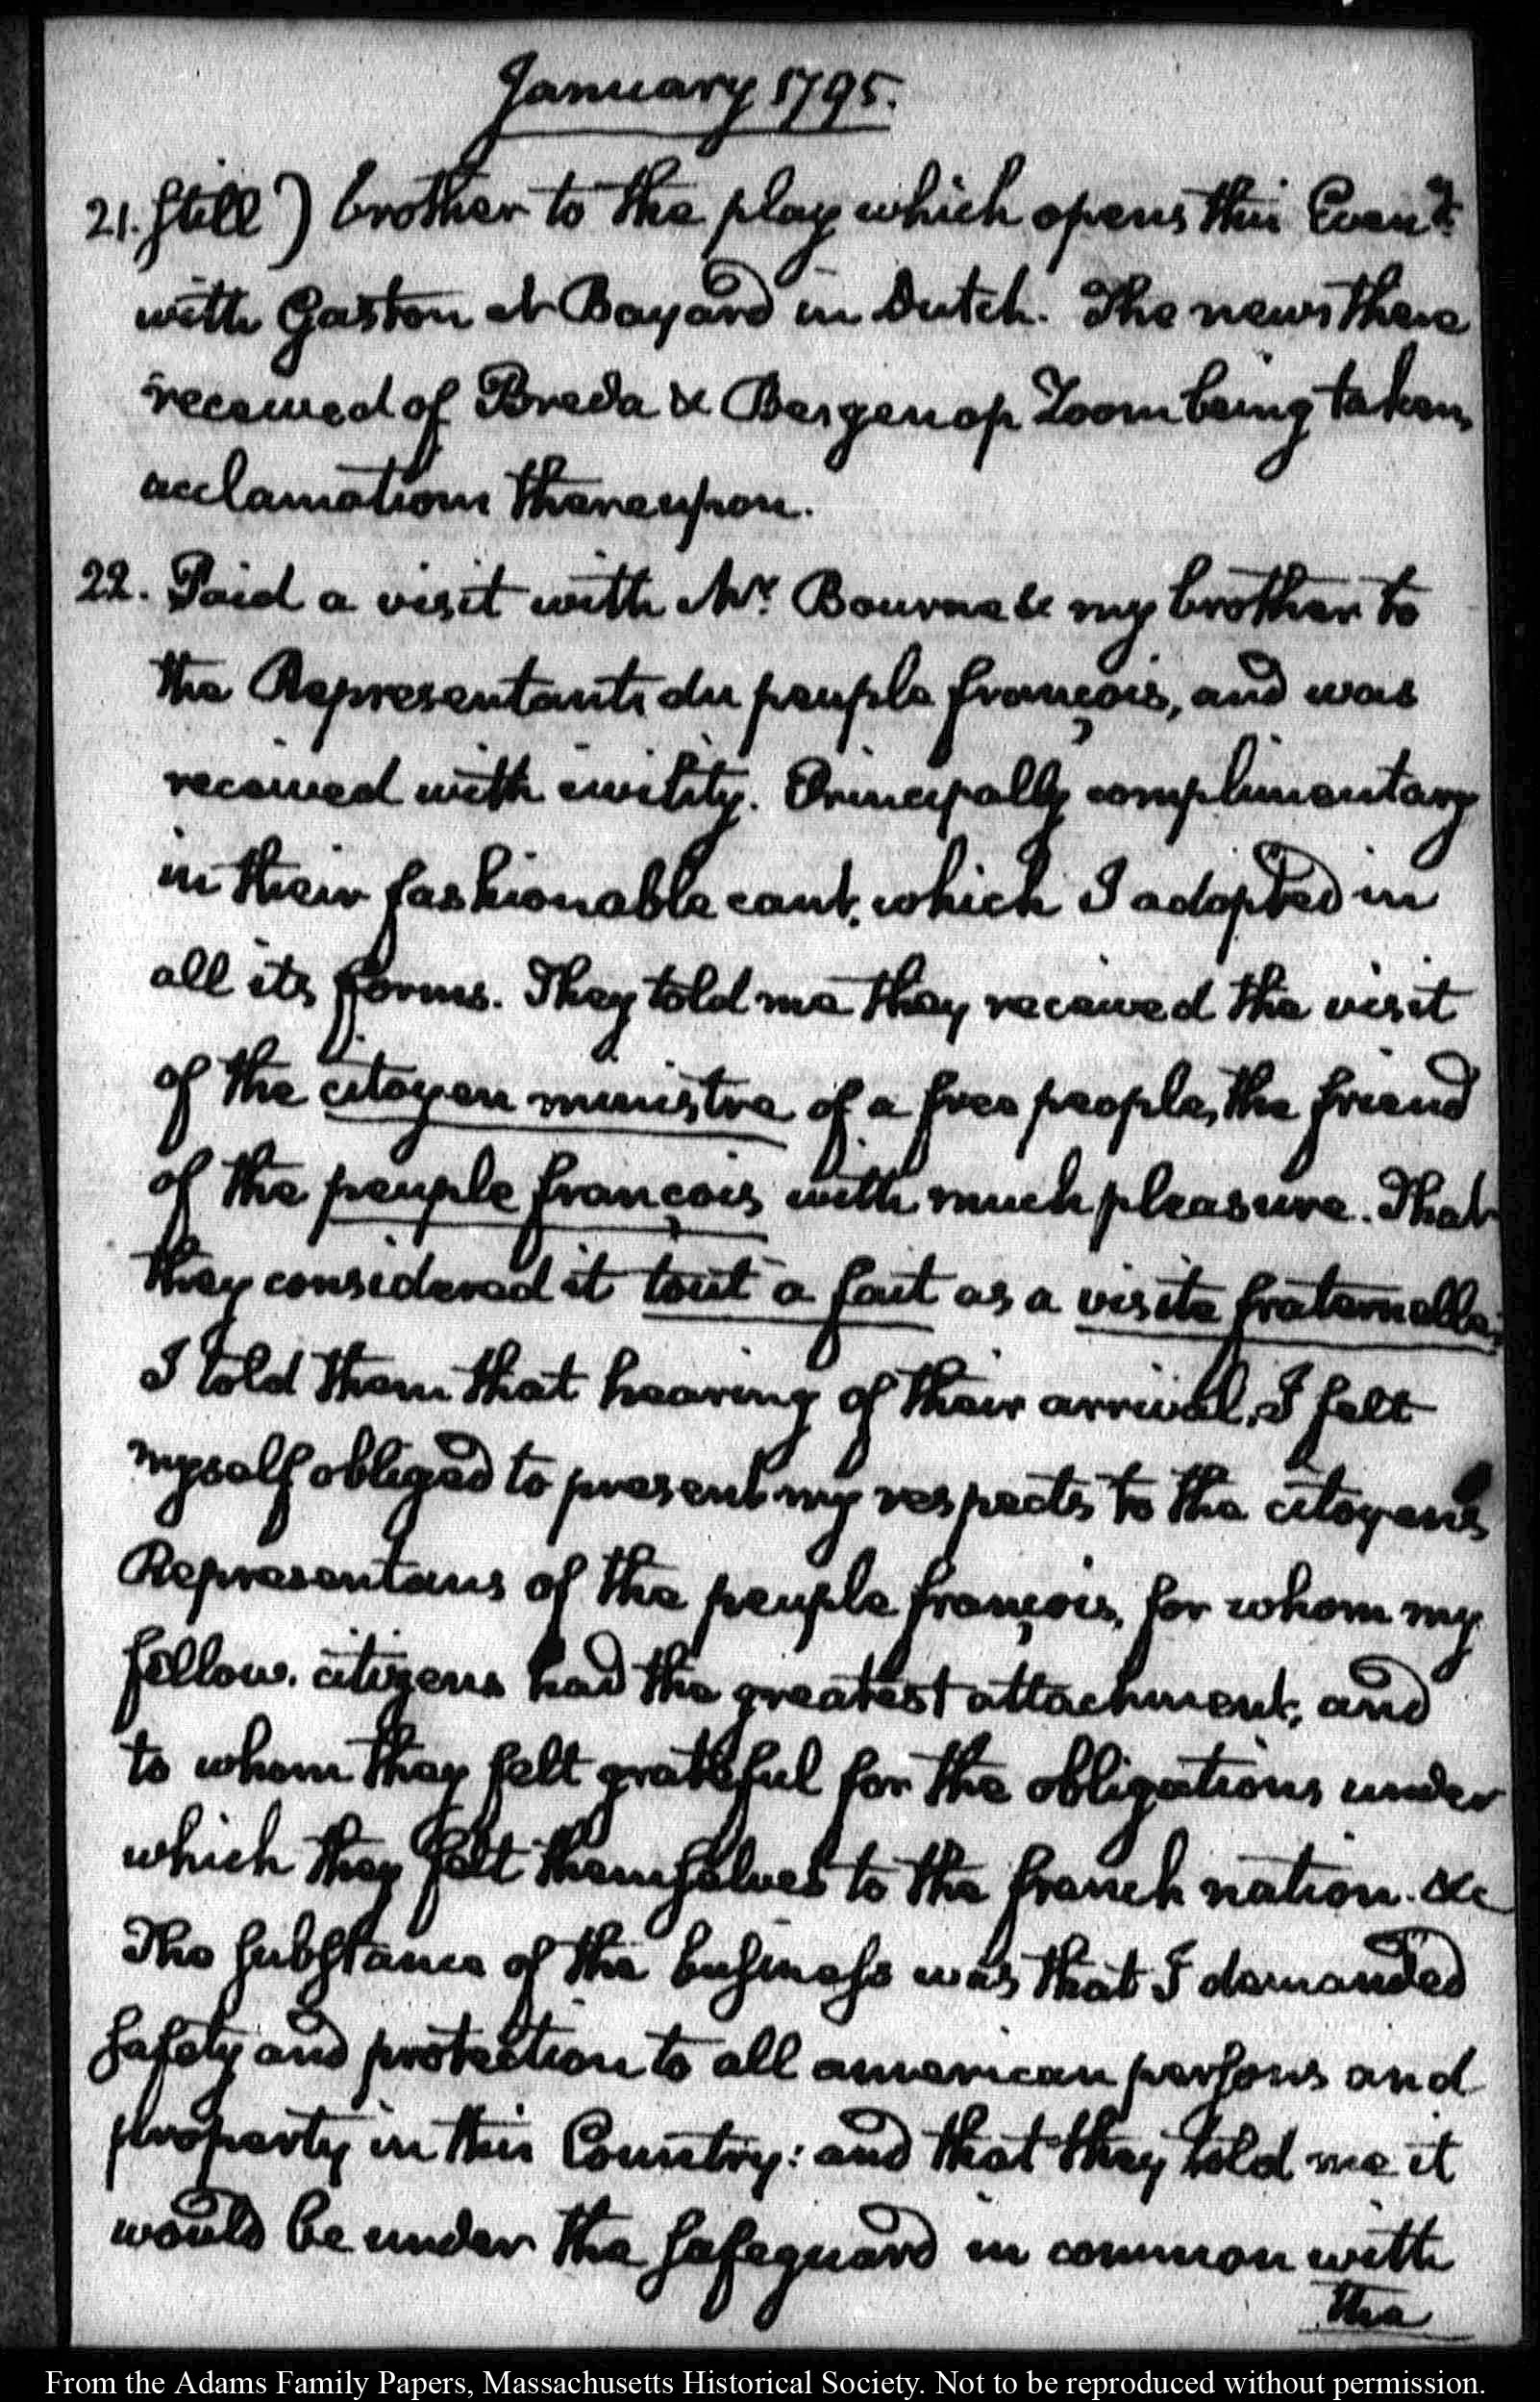 January 1795.
21. still) brother to the play which opens this Even.g
with Gaston et Bayard in Dutch. The news there
received of Breda & Bergenop Zoom being taken,
acclamations thereupon.
22. Paid a visit with Mr. Bourne & my brother to
the Representants du peuple françois, and was
received with civility. Principally complimentary
in their fashionable cant, which I adopted in
all its forms. They told me they received the visit
of the citoyen ministre of a free people, the friend
of the peuple françois with much pleasure. That
they considered it tout à fait as a visite fraternelle;
I told them that hearing of their arrival, I felt
myself obliged to present my respects to the citoyens
Representans of the peuple françois, for whom my
fellow-citizens had the greatest attachment, and
to whom they felt grateful for the obligations under
which they felt themselves to the french nation. &c
The substance of the business was that I demanded
safety and protection to all american persons and
property in this Country: and that they told me it
would be under the safeguard in common with
the
From the Adams Family Papers, Massachusetts Historical Society. Not to be reproduced without permission.